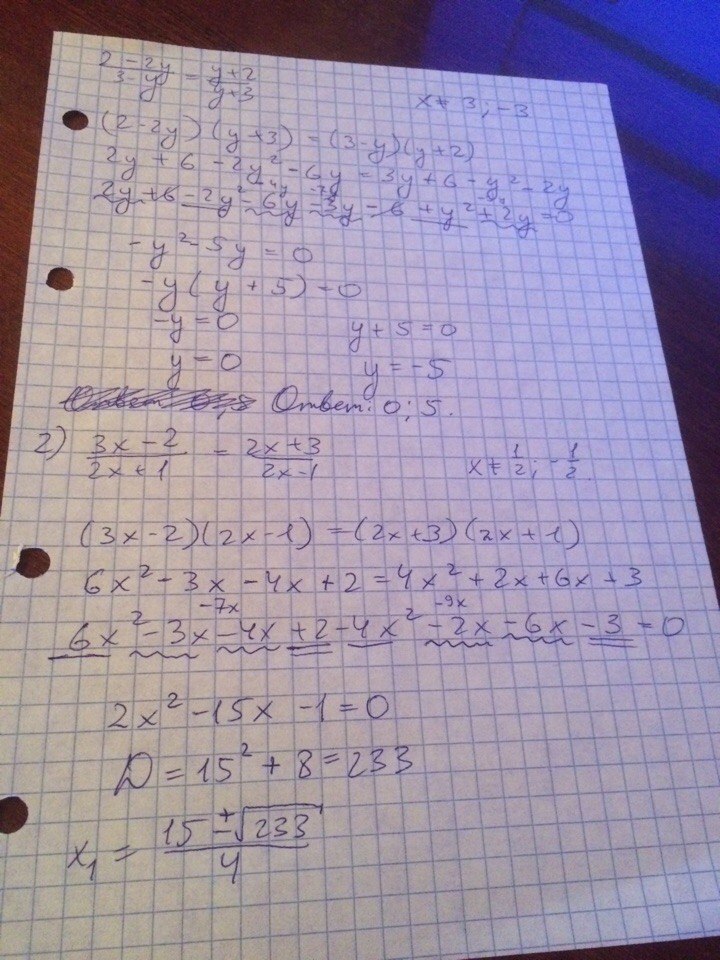 2-2y/3-y = y+2/y+3 x ≠ 3; -3
(2-2y)(y+3) = (3-y)(y+2)
2y + 6 - 2y² - 6y = 3y + 6 - y² - 2y
2y + 6 - 2y² - 6y - 3y - 6 + y² + 2y = 0
-y² - 5y = 0
-y(y+5) = 0
-y = 0 y + 5 = 0
y = 0 y = -5
Ответ: 0; 5.
2) 3x-2/2x+1 = 2x+3/2x-1 x ≠ 1/2; -1/2.
(3x-2)(2x-1) = (2x+3)(2x+1)
6x² - 3x - 4x + 2 = 4x² + 2x + 6x + 3
-7x -9x
6x² - 3x - 4x + 2 - 4x² - 2x - 6x - 3 = 0
2x² - 15x - 1 = 0
D = 15² + 8 = 233
x₁ = 15 ± √233 / 4